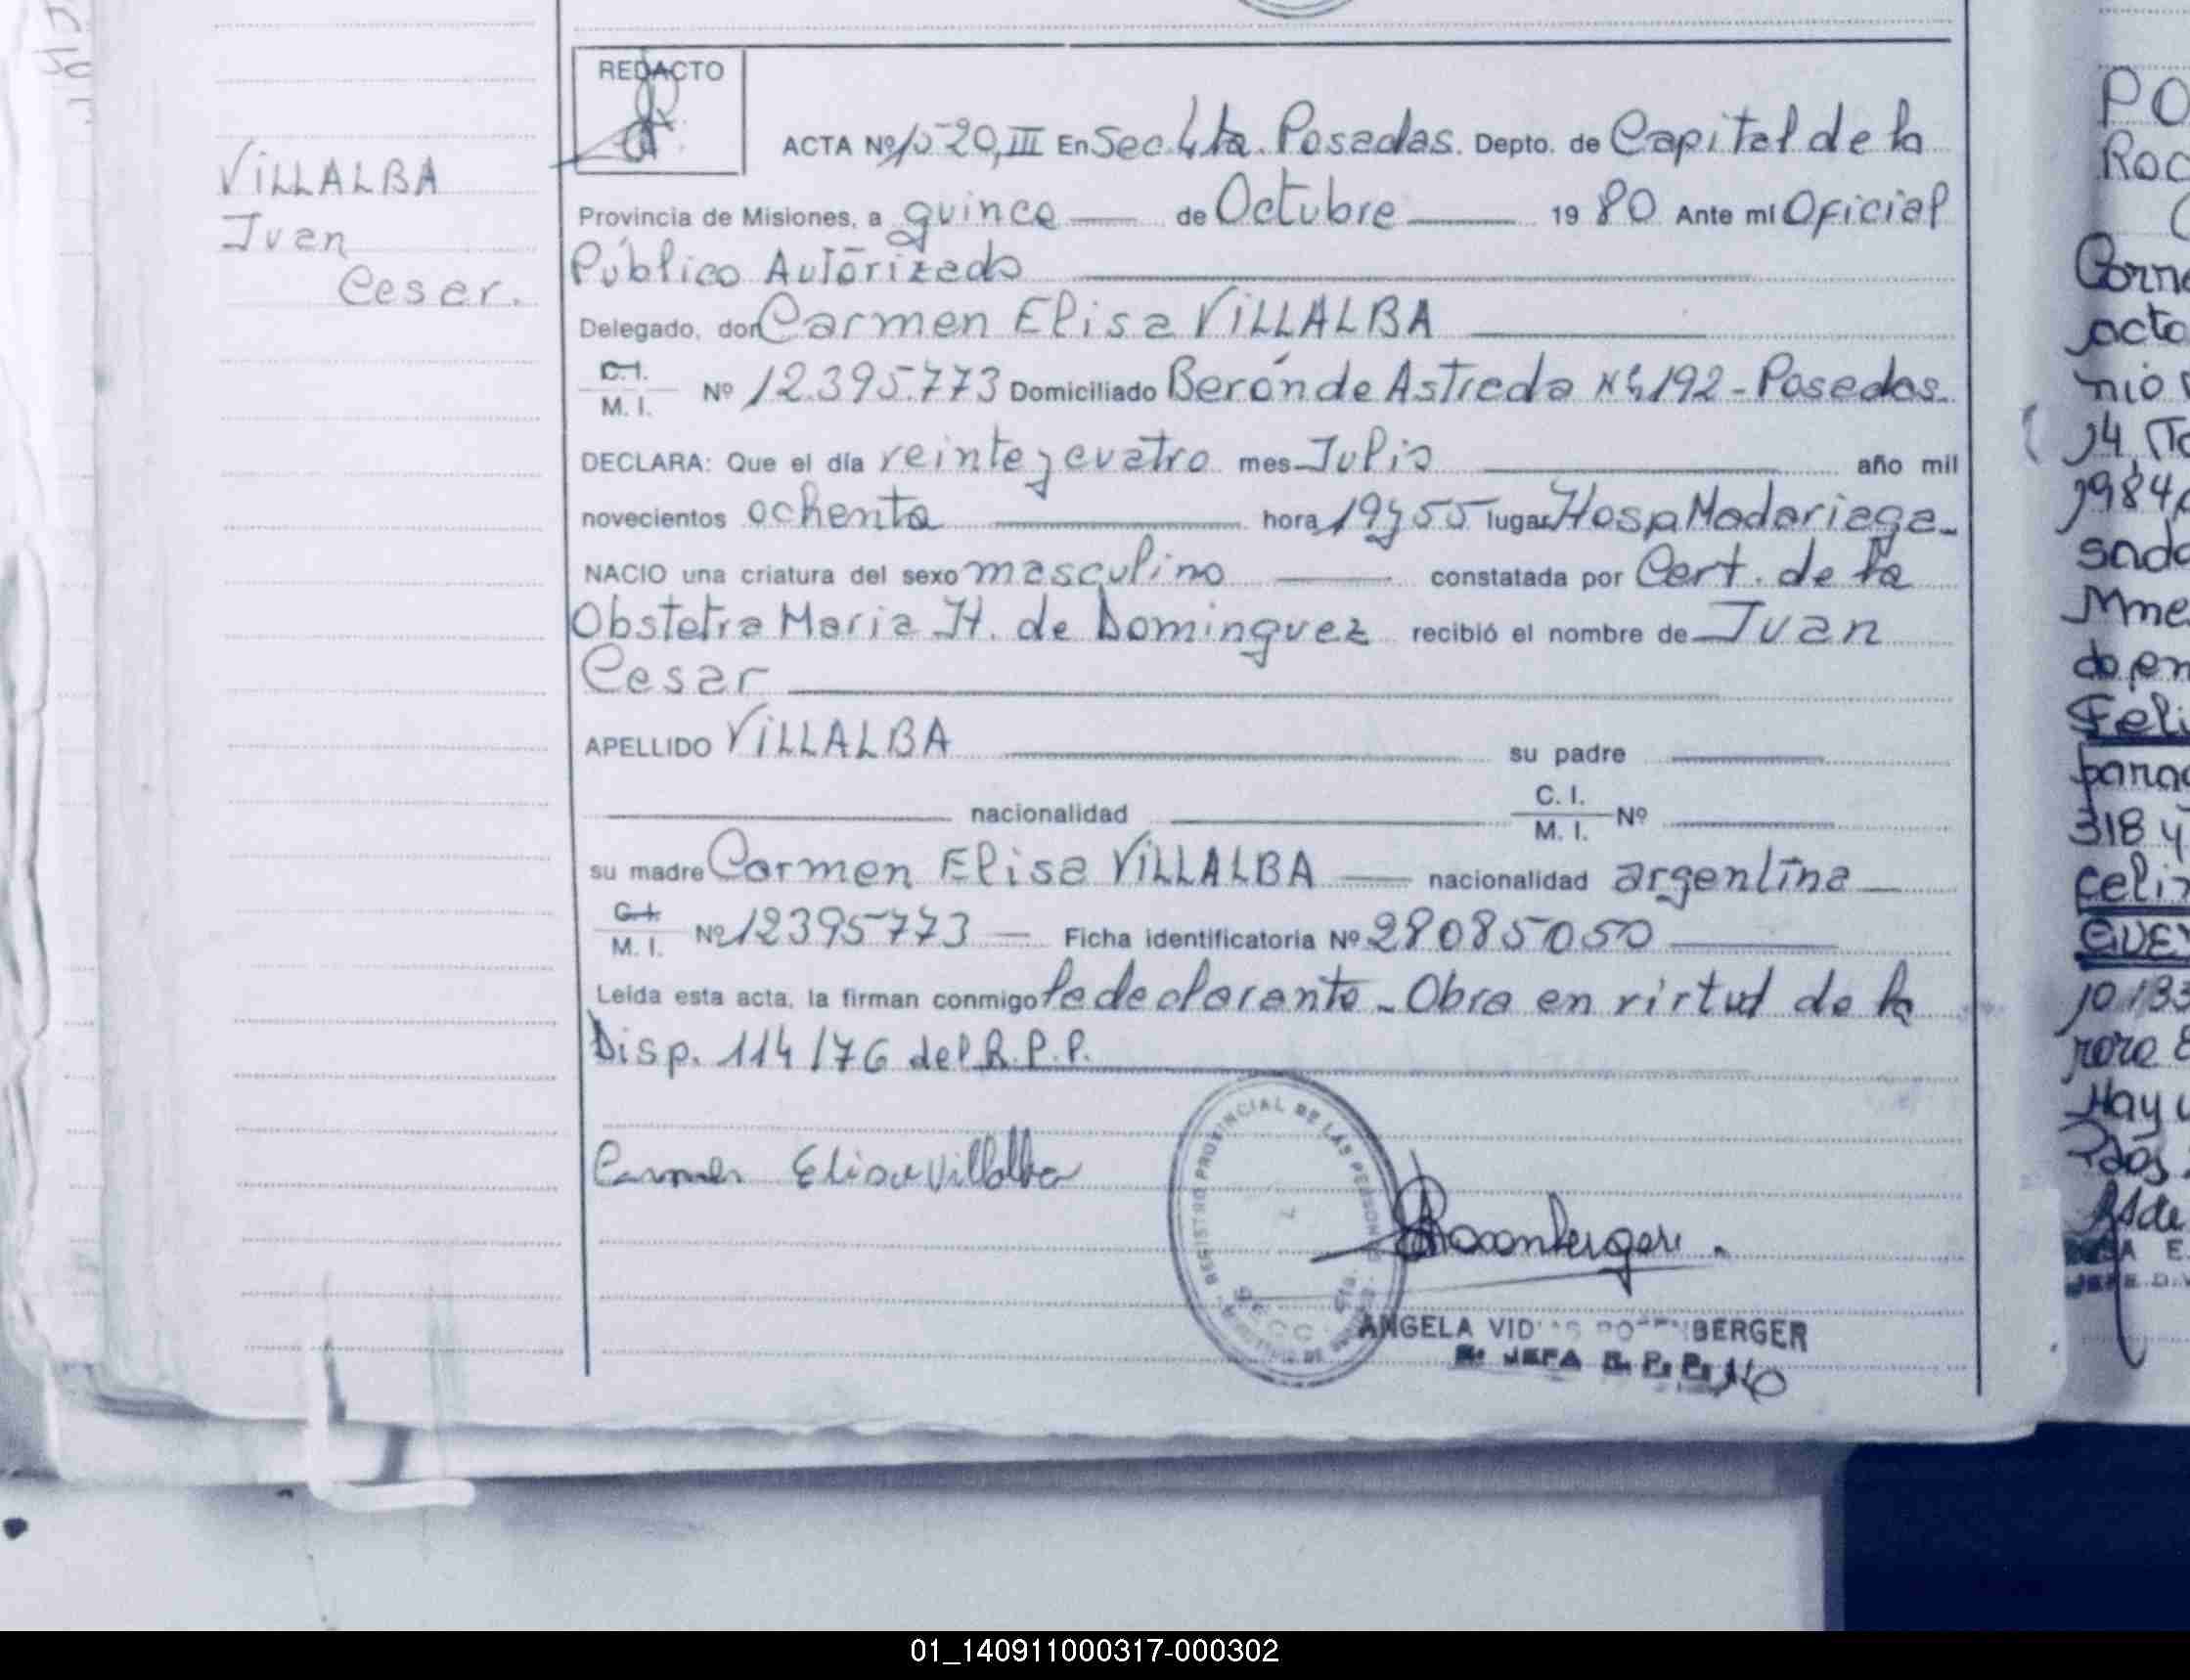 VILLALBA
Juan
Cesar.
REDACTO
ACTA Nº 1020, III En Sec 4ta. Posadas. Depto. de Capital de la
Provincia de Misiones, a quince de Octubre 1980 Ante mi Oficial
Público Autorizado
Delegado, don Carmen Elisa VILLALBA
C.I. M.I. Nº 12.395.773 Domiciliado Berón de Astrada Nº 4192 - Posadas.
DECLARA: Que el día veinte y cuatro mes Julio año mil
novecientos ochenta hora 19 y 55 lugar Hosp Madariaga-
NACIO una criatura del sexo masculino constatada por Cert. de la
Obstetra Maria H. de Dominguez recibió el nombre de Juan
Cesar
APELLIDO VILLALBA su padre
nacionalidad C.I. M.I. Nº
su madre Carmen Elisa VILLALBA nacionalidad argentina
C.I. M.I. Nº 12395773 Ficha identificatoria Nº 28085050
Leída esta acta, la firman conmigo la declarante - Obra en virtud de la
Disp. 114/76 del R.P.P.
Carmen Elisa Villalba
REGISTRO PROVINCIAL DE LAS PERSONAS
ANGELA BERGER
JEFA R. P. P.
PO
Corne
acto
nio
14
1984
sado
do en
Feli
318 y
Hay
01_140911000317-000302